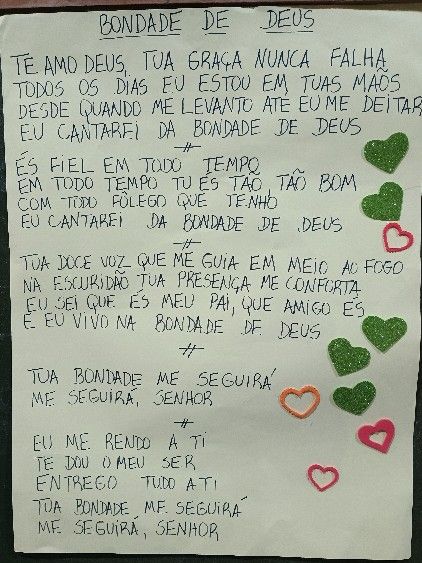 BONDADE DE DEUS
TE AMO DEUS, TUA GRAÇA NUNCA FALHA
TODOS OS DIAS EU ESTOU EM TUAS MÃOS
DESDE QUANDO ME LEVANTO ATÉ EU ME DEITAR
EU CANTAREI DA BONDADE DE DEUS
ÉS FIEL EM TODO TEMPO
EM TODO TEMPO TU ÉS TÃO, TÃO BOM
COM TODO FÔLEGO QUE TENHO
EU CANTAREI DA BONDADE DE DEUS
TUA DOCE VOZ QUE ME GUIA EM MEIO AO FOGO
NA ESCURIDÃO TUA PRESENÇA ME CONFORTA
EU SEI QUE ÉS MEU PAI, QUE AMIGO ÉS
E EU VIVO NA BONDADE DE DEUS
TUA BONDADE ME SEGUIRÁ
ME SEGUIRÁ, SENHOR
EU ME RENDO A TI
TE DOU O MEU SER
ENTREGO TUDO A TI
TUA BONDADE ME SEGUIRÁ
ME SEGUIRÁ, SENHOR